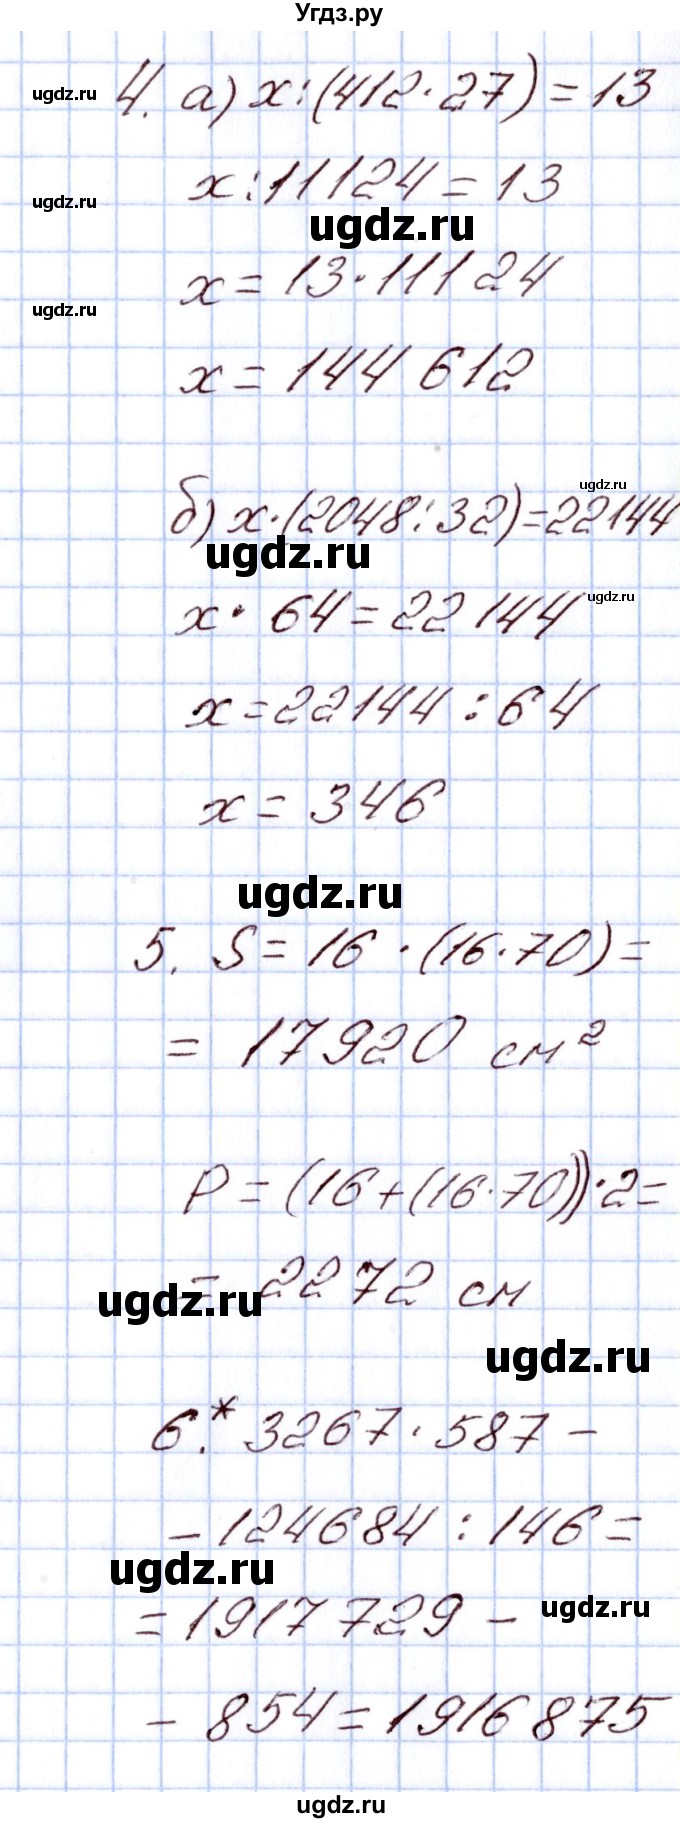 Угдз.ру
ugdz.ru
4. а) x:(412·27)=13
ugdz.ru
x:11124=13
ugdz.ru
ugdz.ru
x=13·11124
x=144 612
ugdz.ru
б) x·(2048:32)=22144
ugdz.ru
x·64=22144
ugdz.ru
x=22144:64
x=346
ugdz.ru
5. S=16·(16·70)=
= 17920 см²
P=(16+(16·70))·2=
= 2272 см
ugdz.ru
ugdz.ru
6.* 3267·587-
-124684:146=
ugdz.ru
=1917729-
ugdz.ru
-854=1916875
ugdz.ru